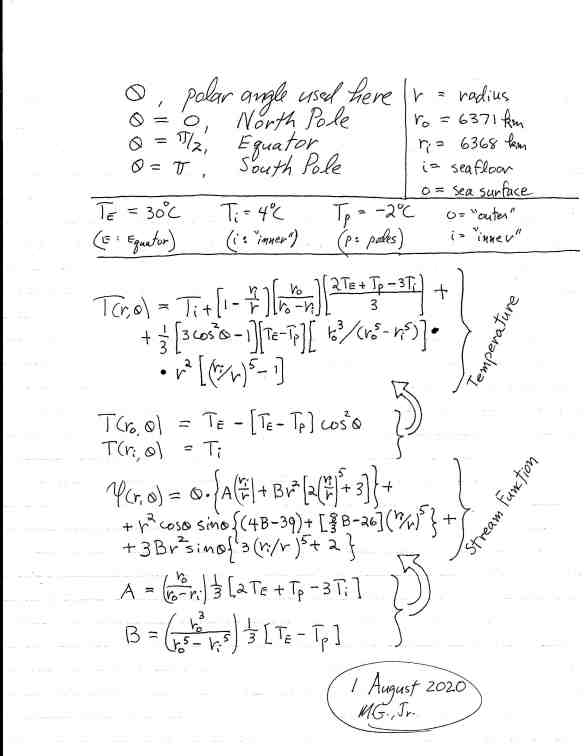 θ, polar angle used here
θ = 0, North Pole
θ = π/2, Equator
θ = π, South Pole
r = radius
r₀ = 6371 km
rᵢ = 6368 km
i = seafloor
o = sea surface
T_E = 30°C Tᵢ = 4°C T_p = -2°C o = "outer"
(E: Equator) (i: "inner") (p: poles) i = "inner"
T(r,θ) = Tᵢ + [1 - rᵢ/r][r₀/(r₀-rᵢ)][(2T_E + T_p - 3Tᵢ)/3] +
+ 1/3 [3cos²θ - 1][T_E - T_p][r₀³/(r₀⁵ - rᵢ⁵)] •
• r² [(rᵢ/r)⁵ - 1]
Temperature
T(r₀,θ) = T_E - [T_E - T_p] cos²θ
T(rᵢ,θ) = Tᵢ
Ψ(r,θ) = θ·{A(rᵢ/r) + Br² [2(rᵢ/r)⁵ + 3]} +
+ r² cosθ sinθ {(4B-39) + [8/3 B - 26](rᵢ/r)⁵} +
+ 3Br² sinθ {3(rᵢ/r)⁵ + 2}
Stream Function
A = (r₀/(r₀-rᵢ)) 1/3 [2T_E + T_p - 3Tᵢ]
B = (r₀³/(r₀⁵ - rᵢ⁵)) 1/3 [T_E - T_p]
1 August 2020
MG., Jr.